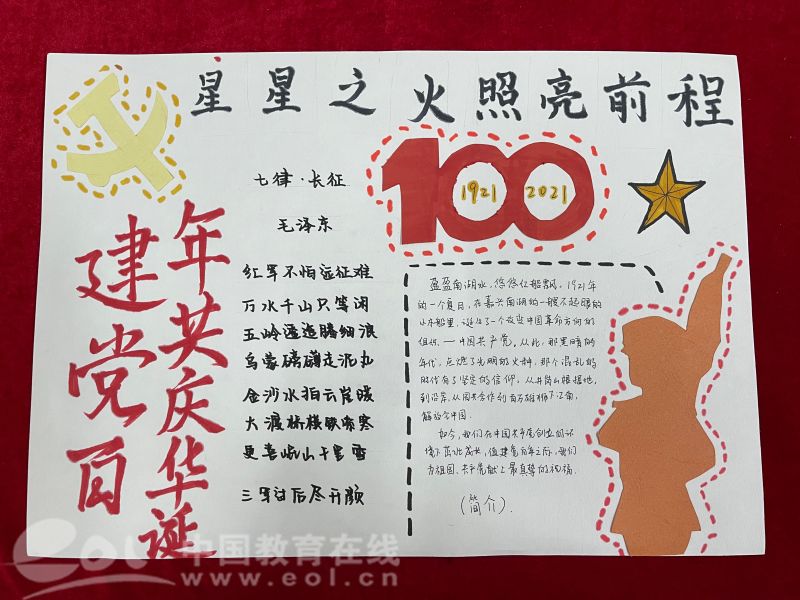 星星之火照亮前程
100
1921 2021
建党百
年共庆华诞
七律·长征
毛泽东
红军不怕远征难
万水千山只等闲
五岭逶迤腾细浪
乌蒙磅礴走泥丸
金沙水拍云崖暖
大渡桥横铁索寒
更喜岷山千里雪
三军过后尽开颜
盈盈南湖水，悠悠红船飘。1921年
的一个夏日，在嘉兴南湖的一艘不起眼的
小木船里，诞生了一个改变中国革命方向的
组织——中国共产党，从此，那黑暗的
年代，点燃了光明的火种，那个混乱的
时代有了坚定的信仰，从井岗山根据地，
到沿岸，从国共合作到百万雄师下江南，
解放全中国。
如今，我们在中国共产党创立的环
境下茁壮成长，值建党百年之际，我们
为祖国，共产党献上最真挚的祝福。
（简介）.
eol 中国教育在线
www.eol.cn